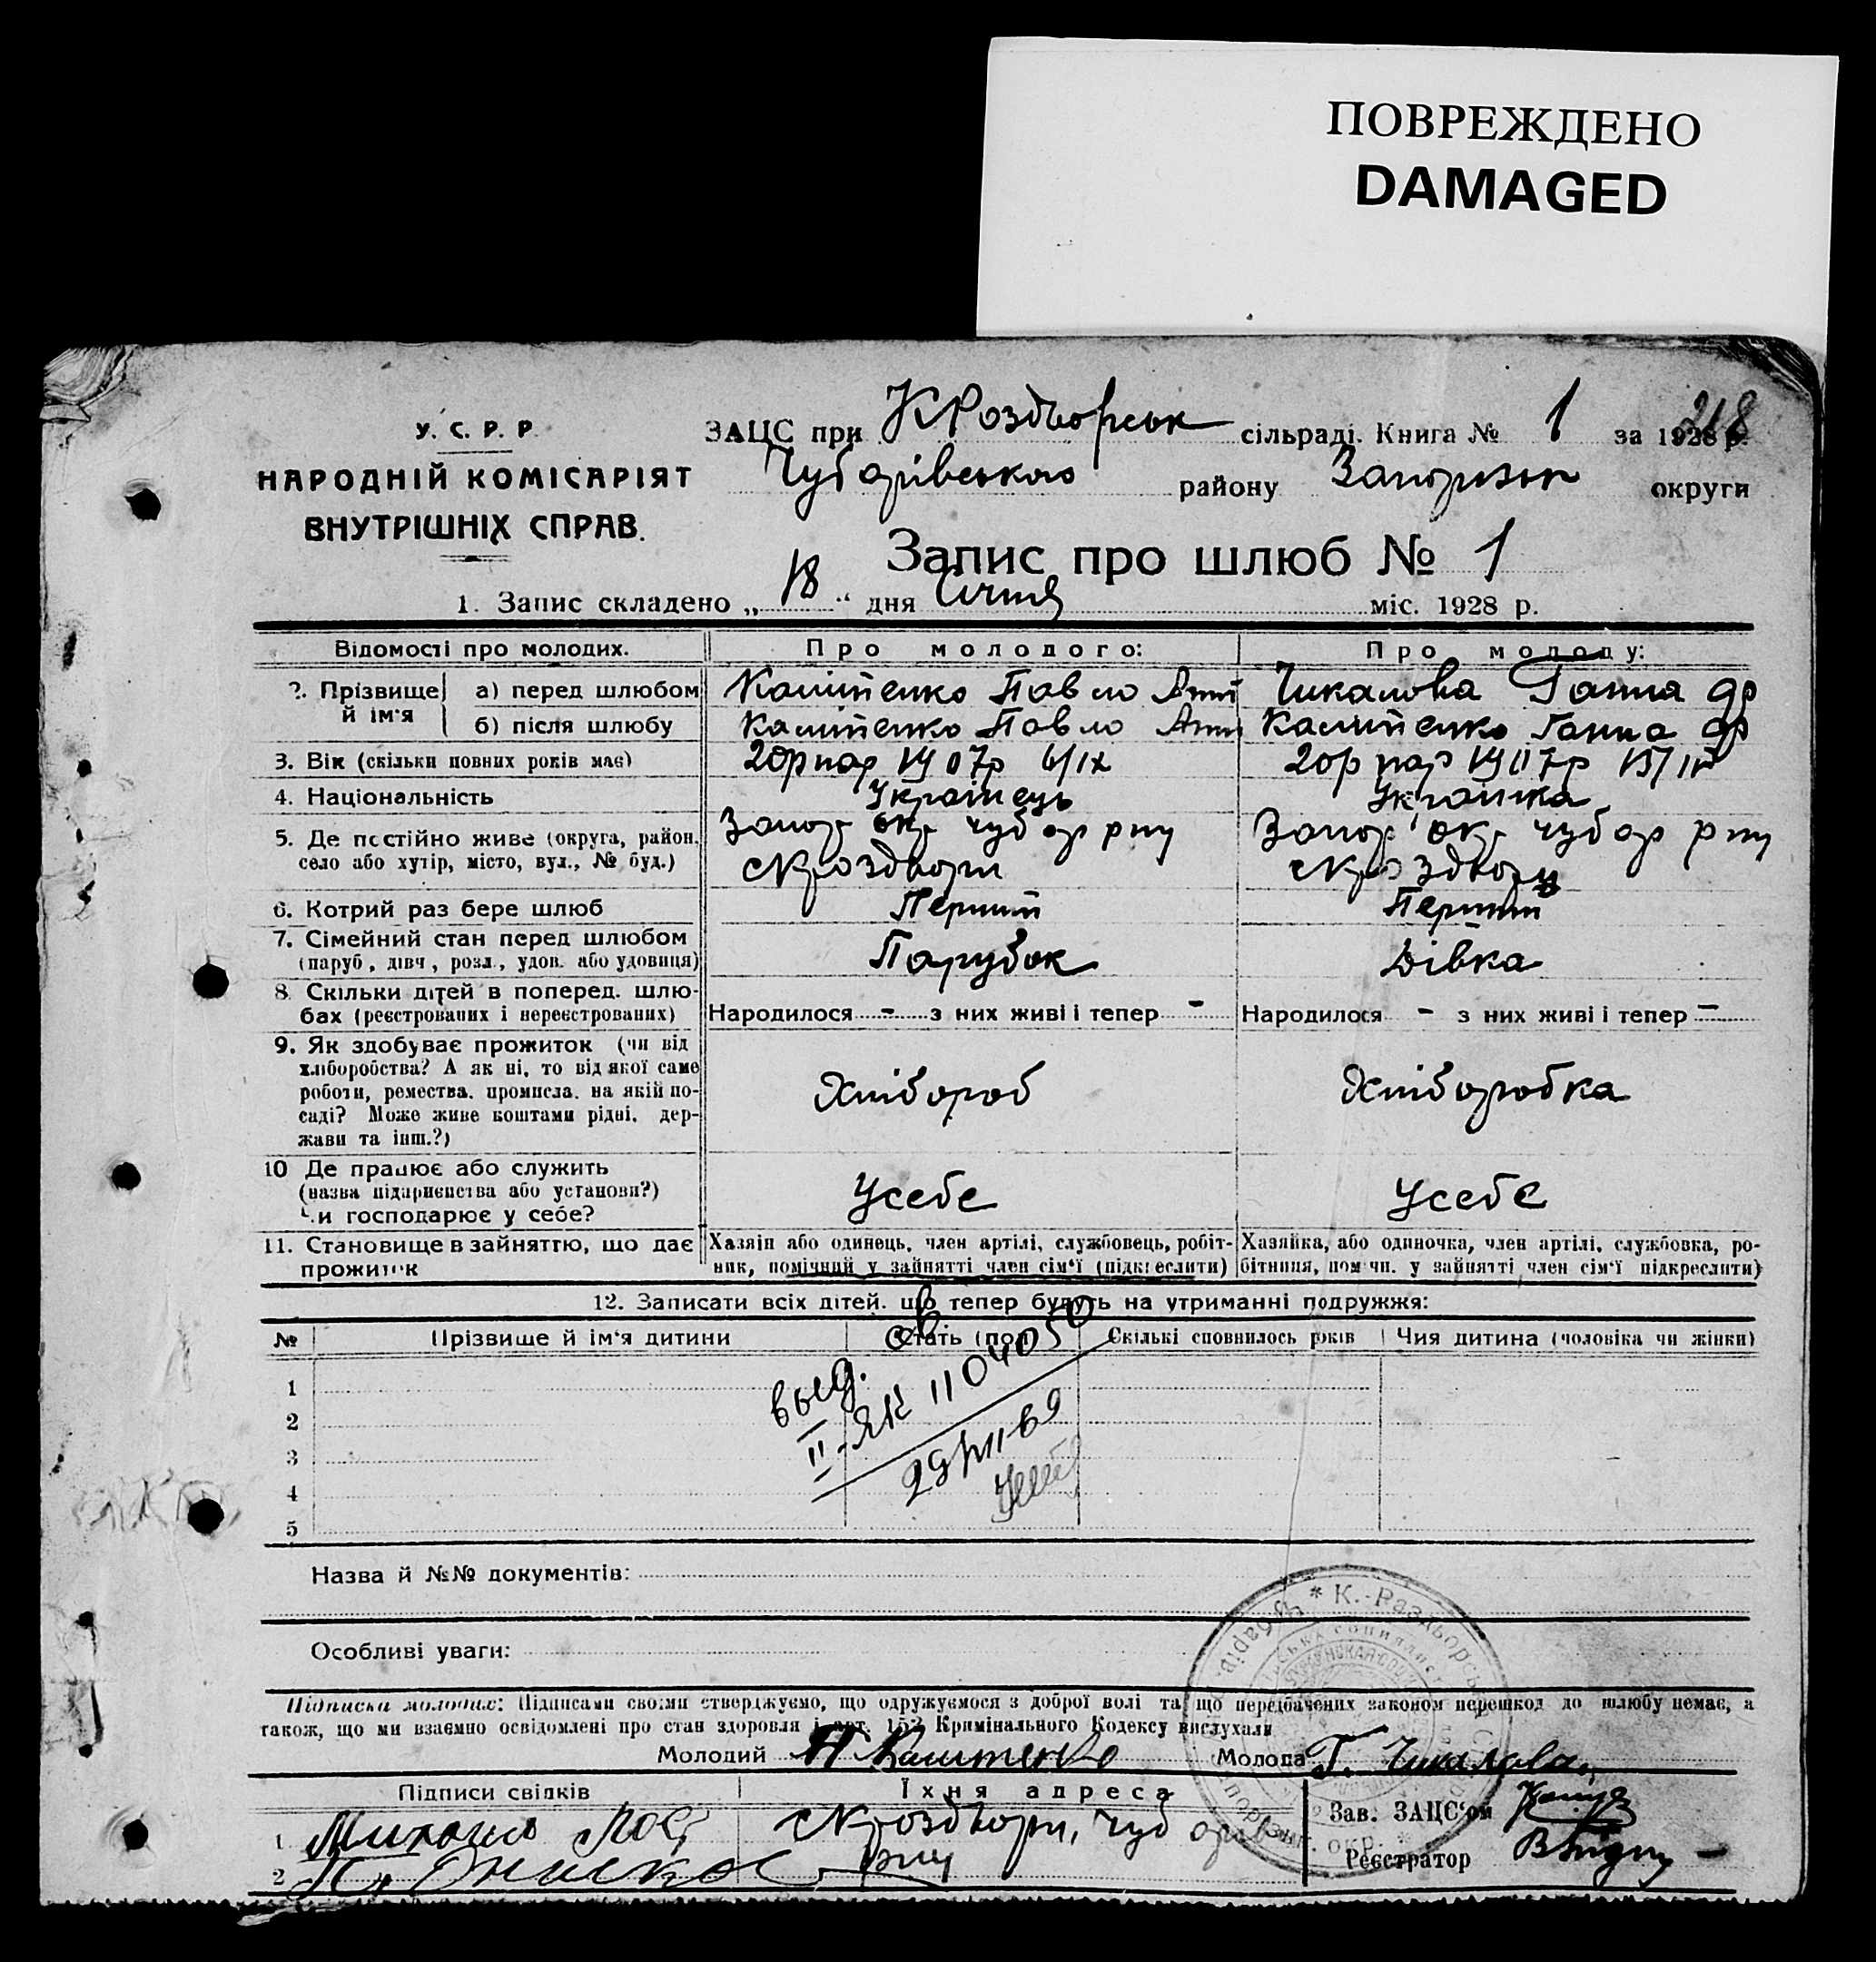 ПОВРЕЖДЕНО
DAMAGED
218
У. С. Р. Р.
НАРОДНІЙ КОМІСАРІЯТ
ВНУТРІШНІХ СПРАВ.
ЗАЦС при К Роздорськ сільраді. Книга № 1 за 1928 р.
Чубарівського району Запорізьк округи
Запис про шлюб № 1
1. Запис складено „ 18 “ дня Січня міс. 1928 р.
Відомості про молодих. Про молодого: Про молоду:
2. Прізвище й ім'я
а) перед шлюбом Калітенко Павло Ант Чикалова Ганна др
б) після шлюбу Калітенко Павло Ант Калітенко Ганна др
3. Вік (скільки повних років має) 20р нар 1907р 6/IX 20р нар 1907р
4. Національність Українець Українка
5. Де постійно живе (округа, район, Запор окр чубар рну Запор окр чубар рну
село або хутір, місто, вул., № буд.) с Кроздори с Кроздори
6. Котрий раз бере шлюб Перший Перший
7. Сімейний стан перед шлюбом
(паруб., дівч., розл., удов. або удовиця) Парубок Дівка
8. Скільки дітей в поперед. шлю-
бах (реєстрованих і нереєстрованих) Народилося - з них живі і тепер - Народилося - з них живі і тепер -
9. Як здобуває прожиток (чи від
хліборобства? А як ні, то від якої саме
роботи, ремества, промисла, на якій по-
саді? Може живе коштами рідні, дер-
жави та інш.?) Хлібороб Хліборобка
10 Де працює або служить
(назва підприємства або установи?)
Чи господарює у себе? Усебе Усебе
11. Становище в зайняттю, що дає
прожиток
Хазяін або одинець, член артілі, службовець, робіт-
ник, помічний у зайнятті член сім'ї (підкреслити)
Хазяйка, або одиночка, член артілі, службовка, ро-
бітниця, пом чн. у зайнятті член сім'ї підкреслити)
12. Записати всіх дітей, що тепер будуть на утриманні подружжя:
№ Прізвище й ім'я дитини Стать (пол) Скількі сповнилось років Чия дитина (чоловіка чи жінки)
1
2
3
4
5
выд. св
II-ЯК 110405
29/VII-69
Назва й №№ документів:
Особливі уваги:
Підписка молодих: Підписами своїми стверджуємо, що одружуємося з доброї волі та що передбачених законом перешкод до шлюбу немає, а
також, що ми взаємно освідомлені про стан здоровля і арт. 152 Кримінального Кодексу вислухали
Молодий П Калітенко Молода Г. Чикалова
Підписи свідків Їхня адреса
Зав. ЗАЦС'ом
1 Михайло с Кроздори, чуб
Реєстратор
2 рну
* К.-Раздорськ
окр. *